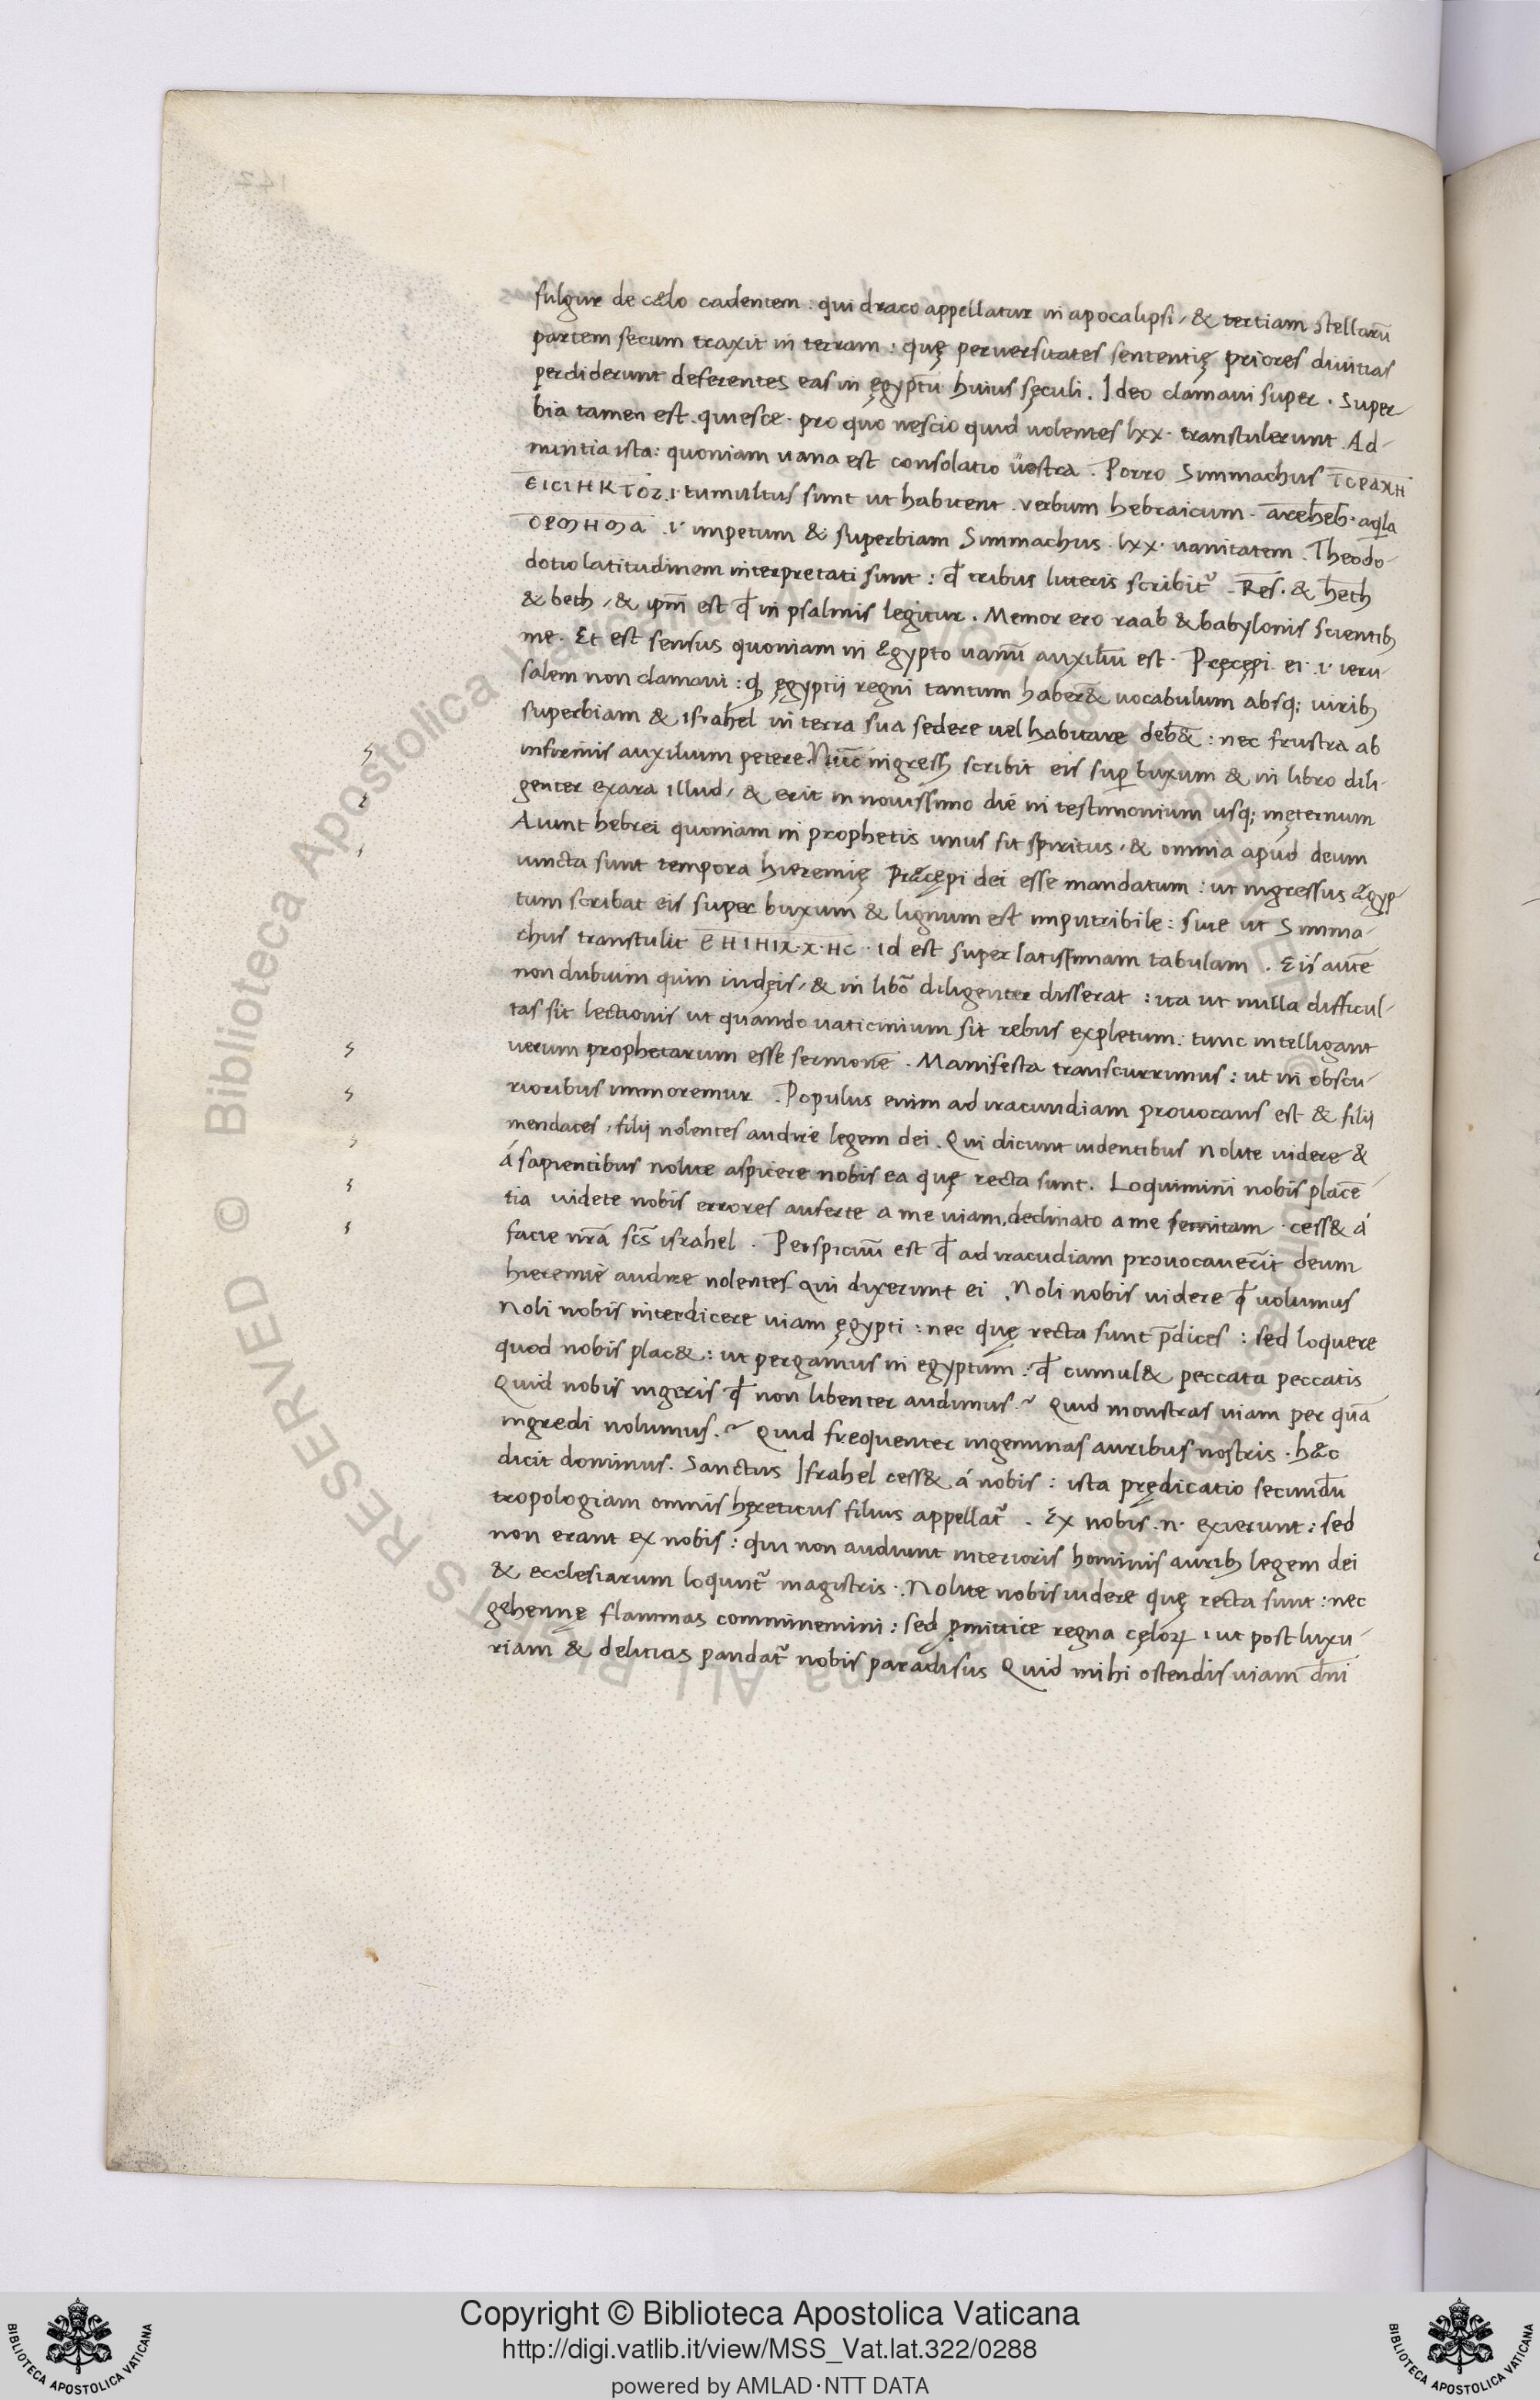 fulgur de cælo cadentem : qui draco appellatur in apocalipsi, & tertiam stellarū
partem secum traxit in terram : quę peruersitates sententię priores diuitias
perdiderunt deferentes eas in ęgyptū huius sęculi . Ideo clamaui super . Super
bia tamen est . quiesce . pro quo nescio quid uolentes lxx . transtulerunt . Ad-
nuntia ista : quoniam uana est consolatio uostra . Porro Simmachus ΤΟΡΑΧΗ
ΕΙCΙΗΚΤΟΖ .i. tumultus sunt ut habitent . verbum hebraicum . areheb . aq̄la
ΟΡΜΗΜΑ .i. impetum & superbiam Simmachus . lxx . uanitatem . Theodo-
dotio latitudinem interpretati sunt : qđ tribus litteris scribit᷑ . Res . & heth
& beth, & ipm̄ est qđ in psalmis legitur . Memor ero raab & babylonis scientib;
me . Et est sensus quoniam in Ægypto uanū auxiliū est . Pręcępi . ei .i. ieru-
salem non clamaui : q; ęgyptij regni tantum haber& uocabulum absq; uirib;
superbiam & israhel in terra sua sedere uel habitare deb& : nec frustra ab
infirmis auxilium petere . Nūc ingress; scribit eis sup buxum & in libro dili-
genter exara illud, & erit in nouissimo die in testimonium usq; inęternum
Aiunt hebrei quoniam in prophetis unus sit spiritus, & omnia apud deum
uincta sunt tempora hieremię Præcępi dei esse mandatum : ut ingressus ægyp
tum scribat eis super buxum & lignum est imputribile : siue ut Simma-
chus transtulit ΕΗΙΗΙΧ.Χ.ΗC . id est super latissimam tabulam . Eis autē
non dubium quin iudęis, & in libō diligenter disserat : ita ut nulla difficul-
tas sit lectionis ut quando uaticinium sit rebus expletum : tunc intelligant
uerum prophetarum esse sermonē . Manifesta transcurrimus : ut in obscu-
rioribus immoremur . Populus enim ad iracundiam prouocans est & filij
mendaces, filij nolentes audire legem dei . Qui dicunt uidentibus nolite uidere &
á sapientibus nolite aspicere nobis ea quę recta sunt . Loquimini nobis placē-
tia uidete nobis errores auferte a me uiam, declinato a me semitam . cess& á
facie nrā scs̄ israhel . Perspicuū est qđ ad iracudiam prouocauerīt deum
hieremię audire nolentes qui dixerunt ei . Noli nobis uidere qđ uolumus
Noli nobis interdicere uiam ęgypti : nec quę recta sunt p̄dices : sed loquere
quod nobis plac& : ut pergamus in egyptum : qđ cumul& peccata peccatis
Quid nobis ingeris qđ non libenter audimus .~ Quid monstras uiam per quā
ingredi nolumus .~ Quid frequenter ingeminas auribus nostris . hæc
dicit dominus . Sanctus Israhel cess& á nobis : ista prędicatio secundū
tropologiam omnis hęreticus filius appellat᷑ . Ex nobis .n. exierunt : sed
non erant ex nobis : qui non audiunt interioris hominis aurib; legem dei
& ecclesiarum loqunt᷑ magistris . Nolite nobis uidere quę recta sunt : nec
gehennę flammas comminemini : sed ꝓmittite regna cęloꝝ, ut post luxu-
riam & delitias pandat᷑ nobis paradisus Quid mihi ostendis uiam dn̄i
Copyright © Biblioteca Apostolica Vaticana
http://digi.vatlib.it/view/MSS_Vat.lat.322/0288
powered by AMLAD·NTT DATA